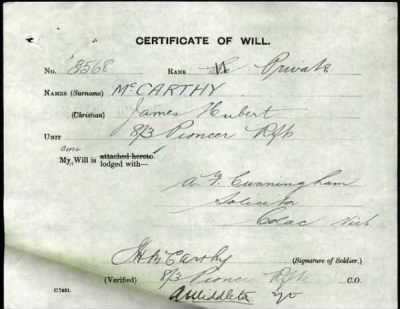 CERTIFICATE OF WILL.
No. 3568 RANK Private
NAMES (Surname) McCARTHY.
(Christian) James Hubert
UNIT 8/3 Pioneer Rfts
My Will is attached hereto. lodged with—
A. F. Cunningham
Solicitor
Colac Vict
J H McCarthy (Signature of Soldier.)
(Verified) 8/3 Pioneer Rfts C.O.
C.7451.